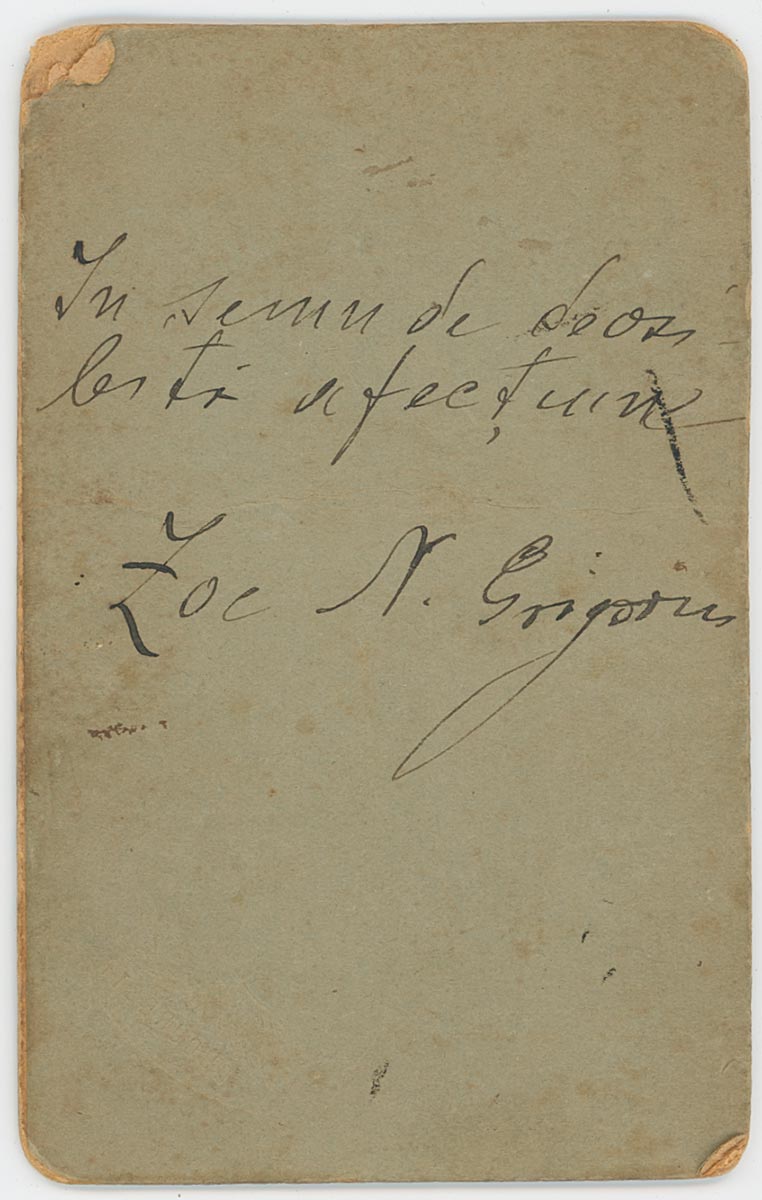 In semn de deosi-
bită afecțiune
Zoe N. Grigoriu